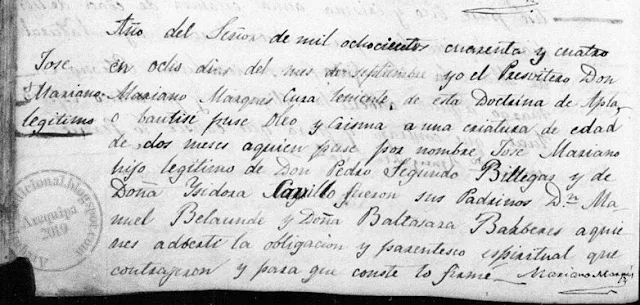 Año del Señor de mil ochocientos cuarenta y cuatro
Jose
Mariano
legitimo
en ocho dias del mes de septiembre yo el Presvitero Don
Mariano Marques Cura teniente de esta Doctrina de Apla
o bautise puse Oleo y Crisma a una criatura de edad
de dos meses aquien puse por nombre Jose Mariano
hijo legitimo de Don Pedro Segundo Billegas y de
Doña Ysidora Carpillo fueron sus Padrinos Dn Ma
nuel Belaunde y Doña Baltasara Barberes aquie
nes adberti la obligacion y parentesco espiritual que
contrajeron y para que conste lo firmé Mariano Marques
cional.blogspot.com
Arequipa
2019